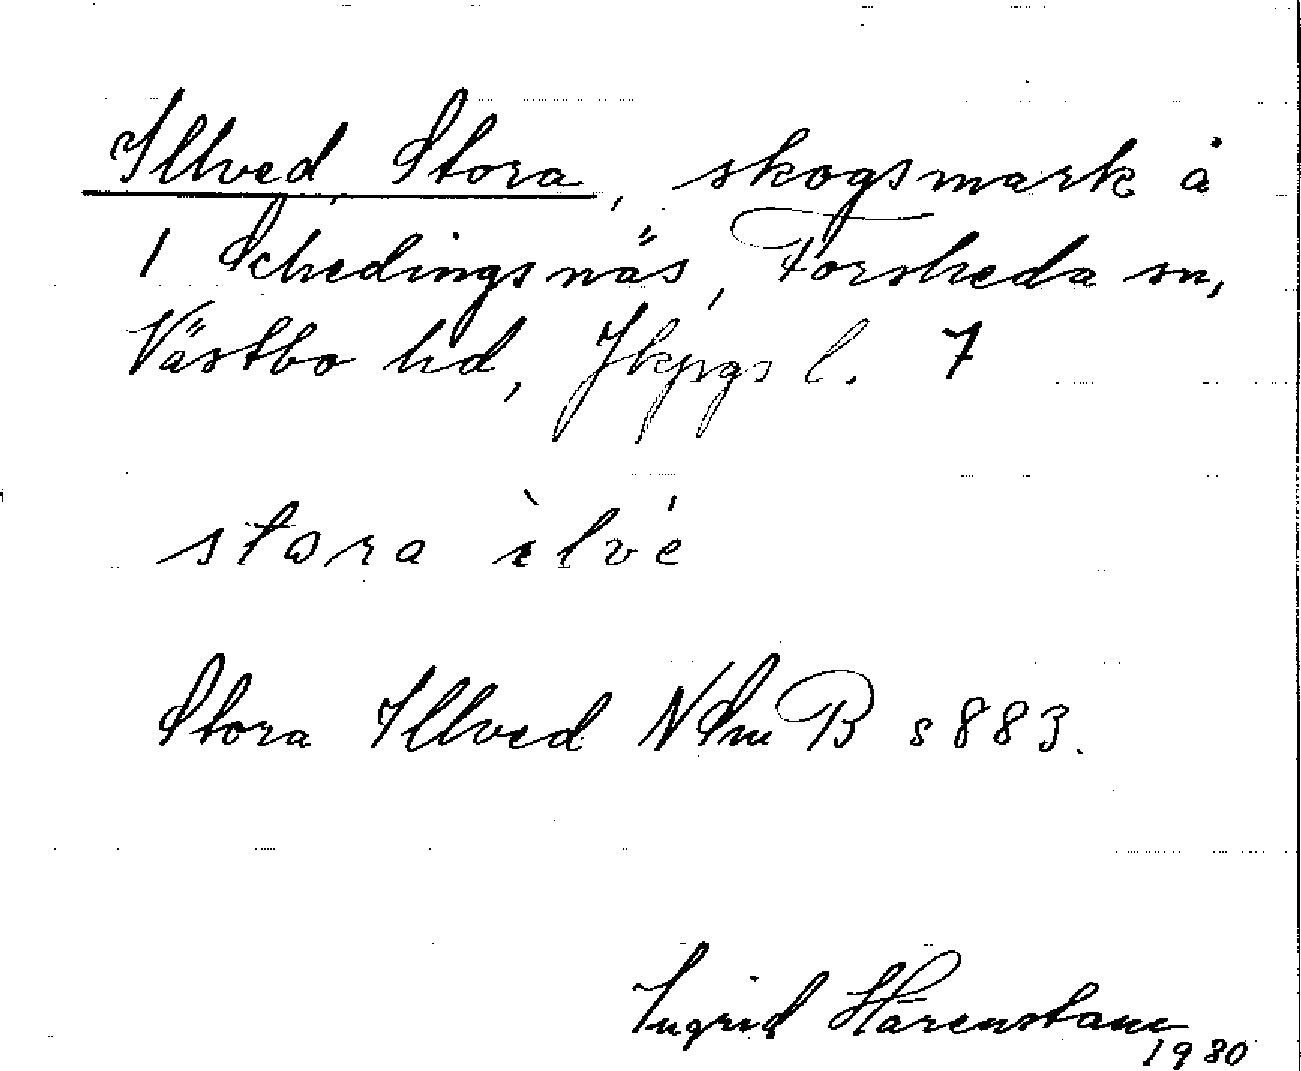 Illved Stora, skogsmark å
1 Schedingsnäs, Forsheda sn,
Västbo hd, Jkpgs l. 7
stora ìlvé
Stora Illved NSmB s 883.
Ingrid Härenstam
1930